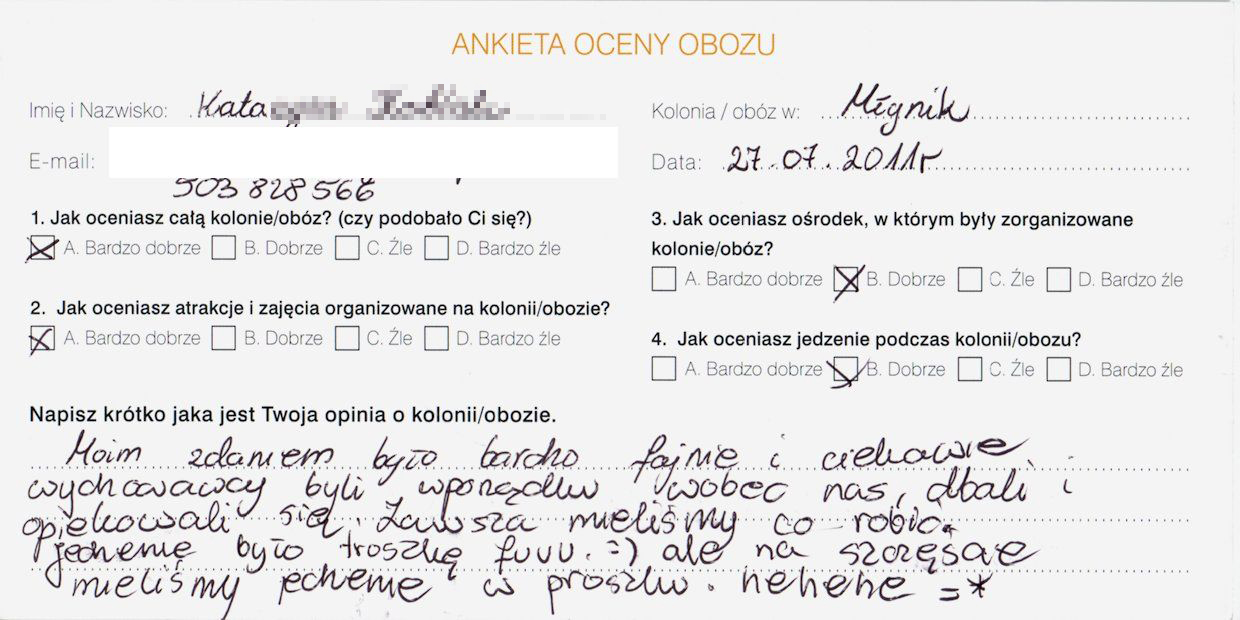 ANKIETA OCENY OBOZU
Imię i Nazwisko: Kata
E-mail:
503 828 566
Kolonia / obóz w: Młynik
Data: 27.07.2011r
1. Jak oceniasz całą kolonie/obóz? (czy podobało Ci się?)
A. Bardzo dobrze B. Dobrze C. Źle D. Bardzo źle
2. Jak oceniasz atrakcje i zajęcia organizowane na kolonii/obozie?
A. Bardzo dobrze B. Dobrze C. Źle D. Bardzo źle
3. Jak oceniasz ośrodek, w którym były zorganizowane
kolonie/obóz?
A. Bardzo dobrze B. Dobrze C. Źle D. Bardzo źle
4. Jak oceniasz jedzenie podczas kolonii/obozu?
A. Bardzo dobrze B. Dobrze C. Źle D. Bardzo źle
Napisz krótko jaka jest Twoja opinia o kolonii/obozie.
Moim zdaniem było bardzo fajnie i ciekawie.
wychowawcy byli wporządku wobec nas, dbali i
opiekowali się. Zawsza mieliśmy co robić.
jedzenie było troszkę fuuu. =) ale na szczęscie
mieliśmy jedzenie w proszku. hehehe =*